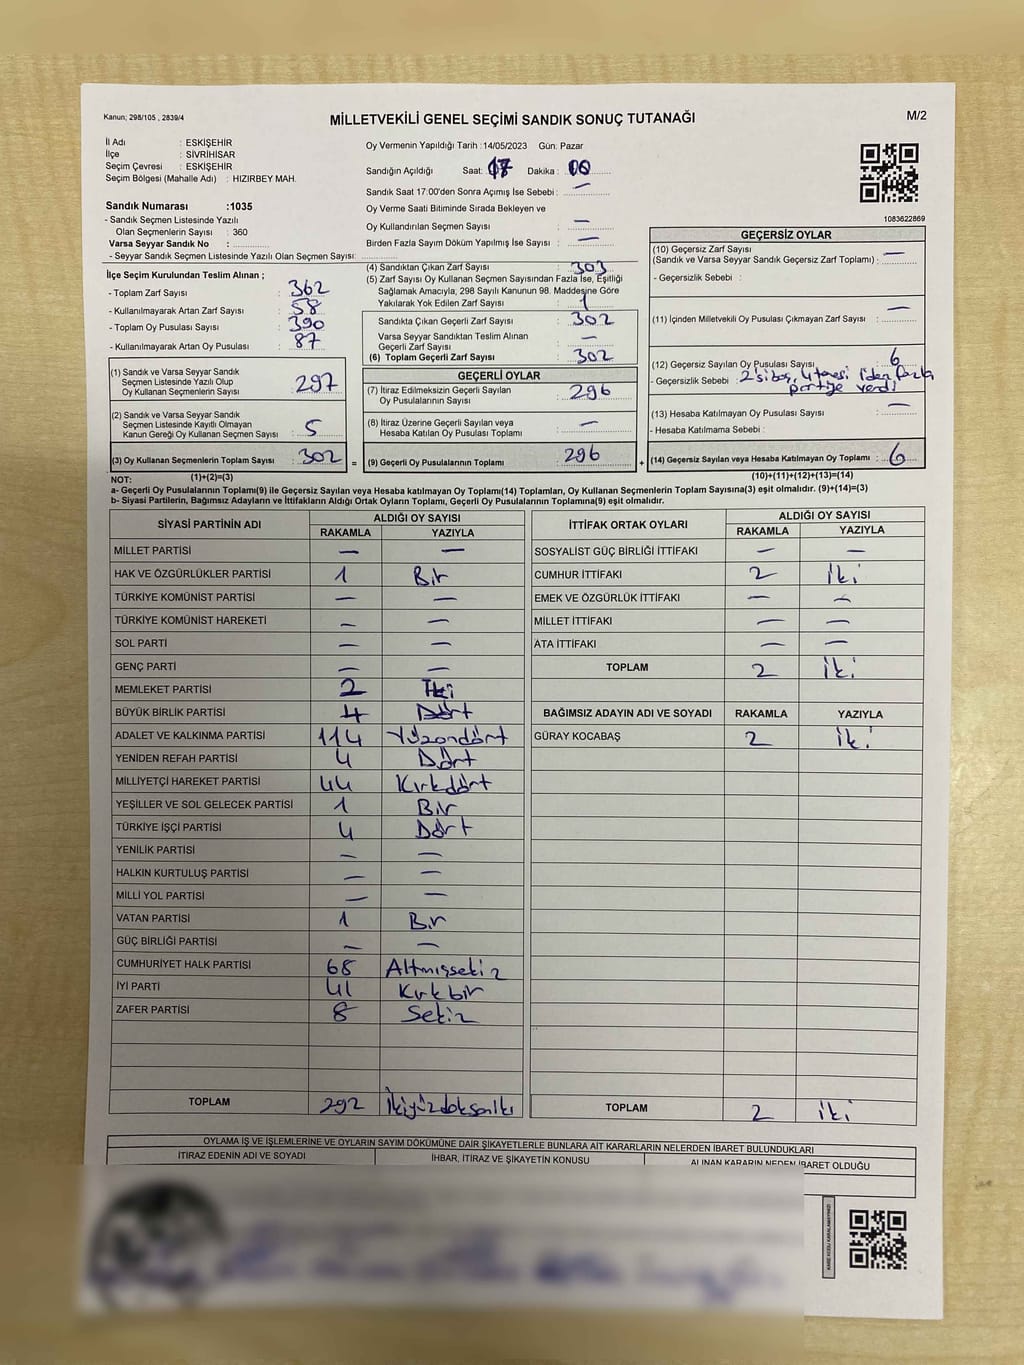 Kanun; 298/105 , 2839/4
MİLLETVEKİLİ GENEL SEÇİMİ SANDIK SONUÇ TUTANAĞI
M/2
İl Adı : ESKİŞEHİR
İlçe : SİVRİHİSAR
Seçim Çevresi : ESKİŞEHİR
Seçim Bölgesi (Mahalle Adı) : HIZIRBEY MAH.
Sandık Numarası :1035
- Sandık Seçmen Listesinde Yazılı
Olan Seçmenlerin Sayısı : 360
Varsa Seyyar Sandık No :
- Seyyar Sandık Seçmen Listesinde Yazılı Olan Seçmen Sayısı:
Oy Vermenin Yapıldığı Tarih :14/05/2023 Gün: Pazar
Sandığın Açıldığı Saat: 17 Dakika : 00
Sandık Saat 17:00'den Sonra Açımış İse Sebebi : —
Oy Verme Saati Bitiminde Sırada Bekleyen ve
Oy Kullandırılan Seçmen Sayısı : —
Birden Fazla Sayım Döküm Yapılmış İse Sayısı : —
1083622869
İlçe Seçim Kurulundan Teslim Alınan ;
- Toplam Zarf Sayısı : 362
- Kullanılmayarak Artan Zarf Sayısı : 58
- Toplam Oy Pusulası Sayısı : 390
- Kullanılmayarak Artan Oy Pusulası : 87
(1) Sandık ve Varsa Seyyar Sandık
Seçmen Listesinde Yazılı Olup
Oy Kullanan Seçmenlerin Sayısı : 297
(2) Sandık ve Varsa Seyyar Sandık
Seçmen Listesinde Kayıtlı Olmayan
Kanun Gereği Oy Kullanan Seçmen Sayısı : 5
(3) Oy Kullanan Seçmenlerin Toplam Sayısı : 302
(4) Sandıktan Çıkan Zarf Sayısı : 303
(5) Zarf Sayısı Oy Kullanan Seçmen Sayısından Fazla İse, Eşitliği
Sağlamak Amacıyla, 298 Sayılı Kanunun 98. Maddesine Göre
Yakılarak Yok Edilen Zarf Sayısı : 1
Sandıkta Çıkan Geçerli Zarf Sayısı : 302
Varsa Seyyar Sandıktan Teslim Alınan
Geçerli Zarf Sayısı : —
(6) Toplam Geçerli Zarf Sayısı : 302
GEÇERLİ OYLAR
(7) İtiraz Edilmeksizin Geçerli Sayılan
Oy Pusulalarının Sayısı : 296
(8) İtiraz Üzerine Geçerli Sayılan veya
Hesaba Katılan Oy Pusulası Toplamı : —
= (9) Geçerli Oy Pusulalarının Toplamı : 296 +
GEÇERSİZ OYLAR
(10) Geçersiz Zarf Sayısı
(Sandık ve Varsa Seyyar Sandık Geçersiz Zarf Toplamı) : —
- Geçersizlik Sebebi :
(11) İçinden Milletvekili Oy Pusulası Çıkmayan Zarf Sayısı : —
(12) Geçersiz Sayılan Oy Pusulası Sayısı : 6
- Geçersizlik Sebebi : 2'si boş, 4 tanesi 1'den fazla
partiye verdi
(13) Hesaba Katılmayan Oy Pusulası Sayısı : —
- Hesaba Katılmama Sebebi :
(14) Geçersiz Sayılan veya Hesaba Katılmayan Oy Toplamı : 6
NOT: (1)+(2)=(3) (10)+(11)+(12)+(13)=(14)
a- Geçerli Oy Pusulalarının Toplamı(9) ile Geçersiz Sayılan veya Hesaba katılmayan Oy Toplamı(14) Toplamları, Oy Kullanan Seçmenlerin Toplam Sayısına(3) eşit olmalıdır. (9)+(14)=(3)
b- Siyasi Partilerin, Bağımsız Adayların ve İttifakların Aldığı Ortak Oyların Toplamı, Geçerli Oy Pusulalarının Toplamına(9) eşit olmalıdır.
SİYASİ PARTİNİN ADI ALDIĞI OY SAYISI
RAKAMLA YAZIYLA
MİLLET PARTİSİ — —
HAK VE ÖZGÜRLÜKLER PARTİSİ 1 Bir
TÜRKİYE KOMÜNİST PARTİSİ — —
TÜRKİYE KOMÜNİST HAREKETİ — —
SOL PARTİ — —
GENÇ PARTİ — —
MEMLEKET PARTİSİ 2 İki
BÜYÜK BİRLİK PARTİSİ 4 Dört
ADALET VE KALKINMA PARTİSİ 114 Yüzondört
YENİDEN REFAH PARTİSİ 4 Dört
MİLLİYETÇİ HAREKET PARTİSİ 44 Kırkdört
YEŞİLLER VE SOL GELECEK PARTİSİ 1 Bir
TÜRKİYE İŞÇİ PARTİSİ 4 Dört
YENİLİK PARTİSİ — —
HALKIN KURTULUŞ PARTİSİ — —
MİLLİ YOL PARTİSİ — —
VATAN PARTİSİ 1 Bir
GÜÇ BİRLİĞİ PARTİSİ — —
CUMHURİYET HALK PARTİSİ 68 Altmışsekiz
İYİ PARTİ 41 Kırkbir
ZAFER PARTİSİ 8 Sekiz
TOPLAM 292 İkiyüzdoksaniki
İTTİFAK ORTAK OYLARI ALDIĞI OY SAYISI
RAKAMLA YAZIYLA
SOSYALİST GÜÇ BİRLİĞİ İTTİFAKI — —
CUMHUR İTTİFAKI 2 İki
EMEK VE ÖZGÜRLÜK İTTİFAKI — —
MİLLET İTTİFAKI — —
ATA İTTİFAKI — —
TOPLAM 2 İki
BAĞIMSIZ ADAYIN ADI VE SOYADI RAKAMLA YAZIYLA
GÜRAY KOCABAŞ 2 İki
TOPLAM 2 iki
OYLAMA İŞ VE İŞLEMLERİNE VE OYLARIN SAYIM DÖKÜMÜNE DAİR ŞİKAYETLERLE BUNLARA AİT KARARLARIN NELERDEN İBARET BULUNDUKLARI
İTİRAZ EDENİN ADI VE SOYADI İHBAR, İTİRAZ VE ŞİKAYETİN KONUSU ALINAN KARARIN NEDEN İBARET OLDUĞU
KARE KODU KARALAMAYINIZ!